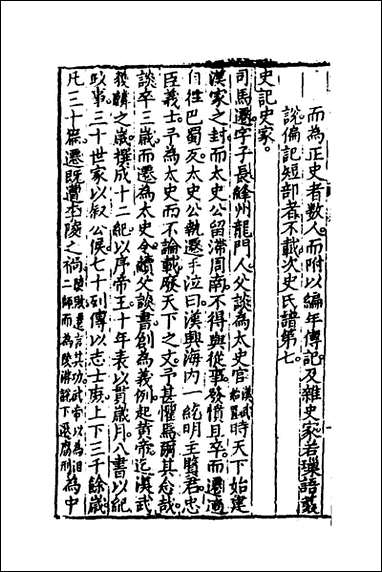 而為正史者数人而附以編年傳記及雜史家若璅語
說偏記短部者不載次史氏譜第七
史記史家
司馬遷字子長絳州龍門人父談為太史官漢武始置時天下始建
漢家之封而太史公留滯周南不得與從事發憤且卒而遷適
自徃巴蜀反太史公執遷手泣曰漢興海内一統明主賢君忠
臣義士予為太史而不論載廢天下之文予甚懼焉爾其念哉
談卒三歳而遷為太史令續父談書創為義例起黄帝迄漢武
獲麟之歳撰成十二紀以序帝王十年表以貫歳月八書以紀
政事三十世家以叙公侯七十列傳以志士庶上下三千餘歳
凡三十篇遷既遭李陵之禍陵敗遷言其功武帝以為沮二師而為陵游說下遷腐刑為中